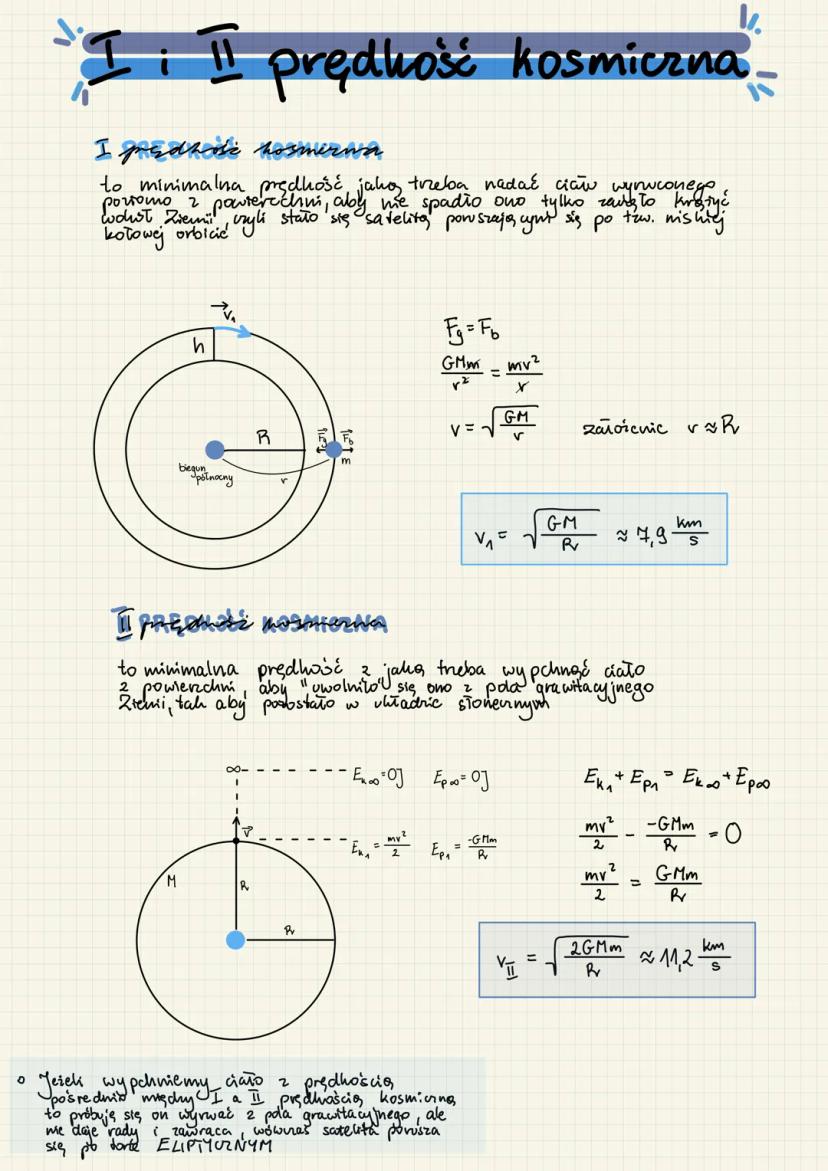 I i II prędkość kosmiczna
I prędkość kosmiczna
to minimalna prędkość jaką trzeba nadać ciału wyrzuconego
poziomo z powierzchni, aby nie spadło ono tylko zaczęło krążyć
wokół Ziemi, czyli stało się satelitą poruszającym się po tzw. niskiej
kołowej orbicie
v₁
h
R
Fg Fb
m
r
biegun
północny
Fg = Fb
GMm/r² = mv²/r
v = √(GM/r) założenie r ≈ R
v₁ = √(GM/R) ≈ 7,9 km/s
II prędkość kosmiczna
to minimalna prędkość z jaką trzeba wypchnąć ciało
z powierzchni, aby "uwolniło" się ono z pola grawitacyjnego
Ziemi, tak aby pozostało w układzie słonecznym
∞ Ek∞=0J Ep∞=0J
v Ek₁ = mv²/2 Ep₁ = -GMm/R
M
R
R
Ek₁ + Ep₁ = Ek∞ + Ep∞
mv²/2 - -GMm/R = 0
mv²/2 = GMm/R
v_II = √(2GMm/R) ≈ 11,2 km/s
o Jeżeli wypchniemy ciało z prędkością
pośrednio między I a II prędkością kosmiczną
to próbuję się on wyrwać z pola grawitacyjnego, ale
nie daje rady i zawraca, wówczas satelita porusza
się po torze ELIPTYCZNYM